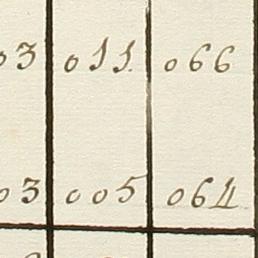 03 011 066
03 005 064